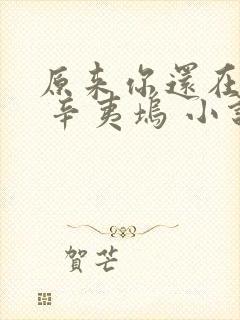 原来你還在
辛夷塢 小
賀芒